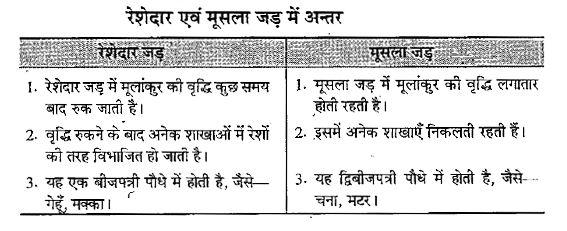 रेशेदार एवं मूसला जड़ में अन्तर
रेशेदार जड़
1. रेशेदार जड़ में मूलांकुर की वृद्धि कुछ समय
बाद रुक जाती है।
2. वृद्धि रुकने के बाद अनेक शाखाओं में रेशों
की तरह विभाजित हो जाती है।
3. यह एक बीजपत्री पौधे में होती है, जैसे—
गेहूँ, मक्का।
मूसला जड़
1. मूसला जड़ में मूलांकुर की वृद्धि लगातार
होती रहती है।
2. इसमें अनेक शाखाएँ निकलती रहती हैं।
3. यह द्विबीजपत्री पौधे में होती है, जैसे—
चना, मटर।